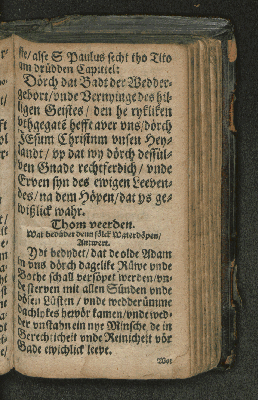 ste / alse S Paulus secht tho Tito
am drüdden Capittel:
Dörch dat Badt der Wedder-
gebort / vnde Vernyinge des hil-
ligen Geistes / den he rykliken
vthgegatē hefft auer vns / dörch
JEsum Christum vnsen Hey-
landt / vp dat wy dörch dessül-
ven Gnade rechtferdich / vnde
Erven syn des ewigen Leeven-
des / na dem Höpen / dat ys ge-
wißlick wahr.
Thom veerden.
Wat bedüdet denn sölck Waterdöpen /
Antwort.
Ydt bedüdet / dat de olde Adam
in vns dörch dagelike Rüwe vnde
Bothe schall versöpet werden / vn-
de sterven mit allen Sünden vnde
bösen Lüsten / vnde wedderümme
dachlykes hervör kamen / vnde wed-
der vpstahn ein nye Minsche de in
Gerechticheit vnde Reinicheit vör
Gade ewichlick leeve.
Wor